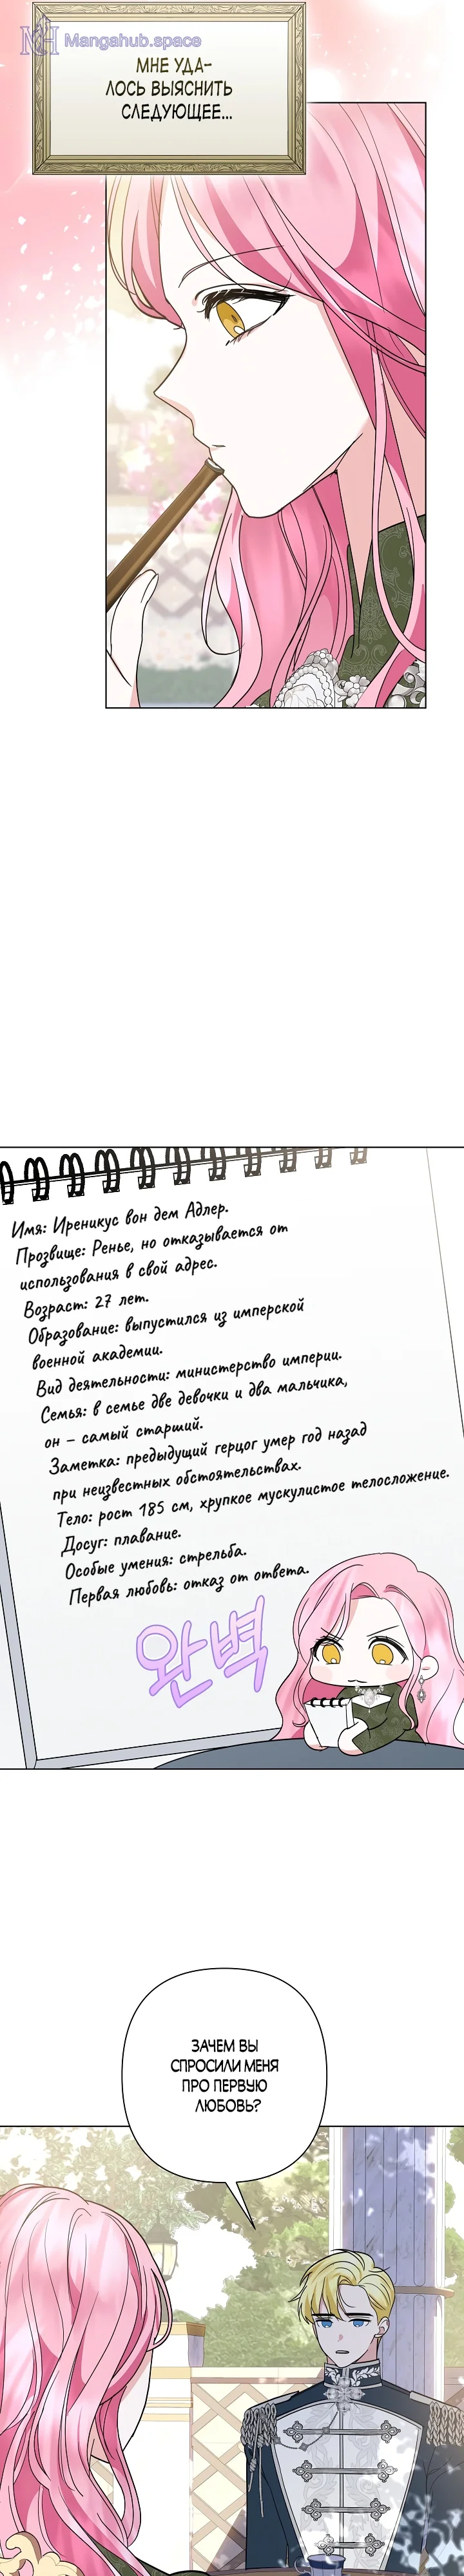 Mangahub.space
МНЕ УДА-
ЛОСЬ ВЫЯСНИТЬ
СЛЕДУЮЩЕЕ...
Имя: Иреникус вон дем Адлер.
Прозвище: Ренье, но отказывается от
использования в свой адрес.
Возраст: 27 лет.
Образование: выпустился из имперской
военной академии.
Вид деятельности: министерство империи.
Семья: в семье две девочки и два мальчика,
он – самый старший.
Заметка: предыдущий герцог умер год назад
при неизвестных обстоятельствах.
Тело: рост 185 см, хрупкое мускулистое телосложение.
Досуг: плавание.
Особые умения: стрельба.
Первая любовь: отказ от ответа.
완벽
ЗАЧЕМ ВЫ
СПРОСИЛИ МЕНЯ
ПРО ПЕРВУЮ
ЛЮБОВЬ?